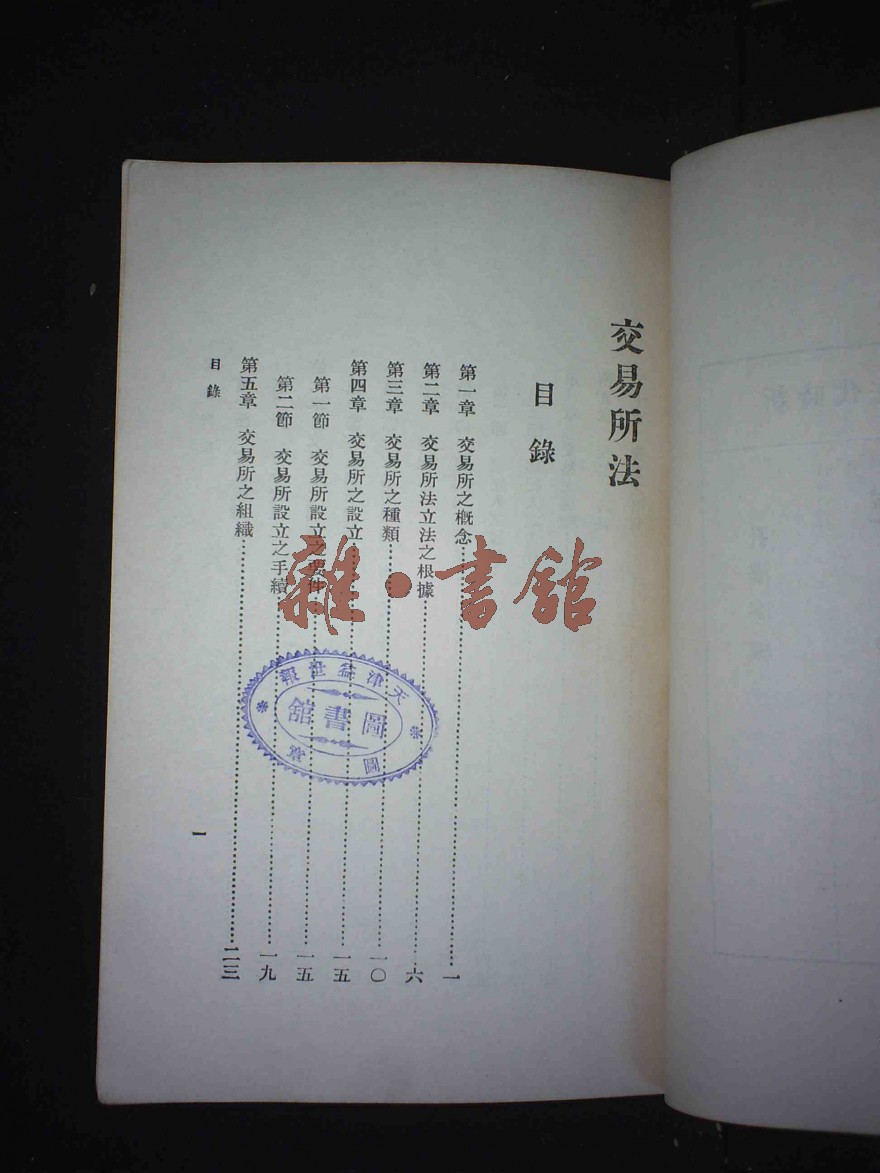 交易所法
目錄
第一章　交易所之概念…………一
第二章　交易所法立法之根據…………六
第三章　交易所之種類…………一〇
第四章　交易所之設立…………一五
第一節　交易所設立之要件…………一五
第二節　交易所設立之手續…………一九
第五章　交易所之組織…………二三
目錄
一
雜·書館
天津益世報
圖書館
圖章